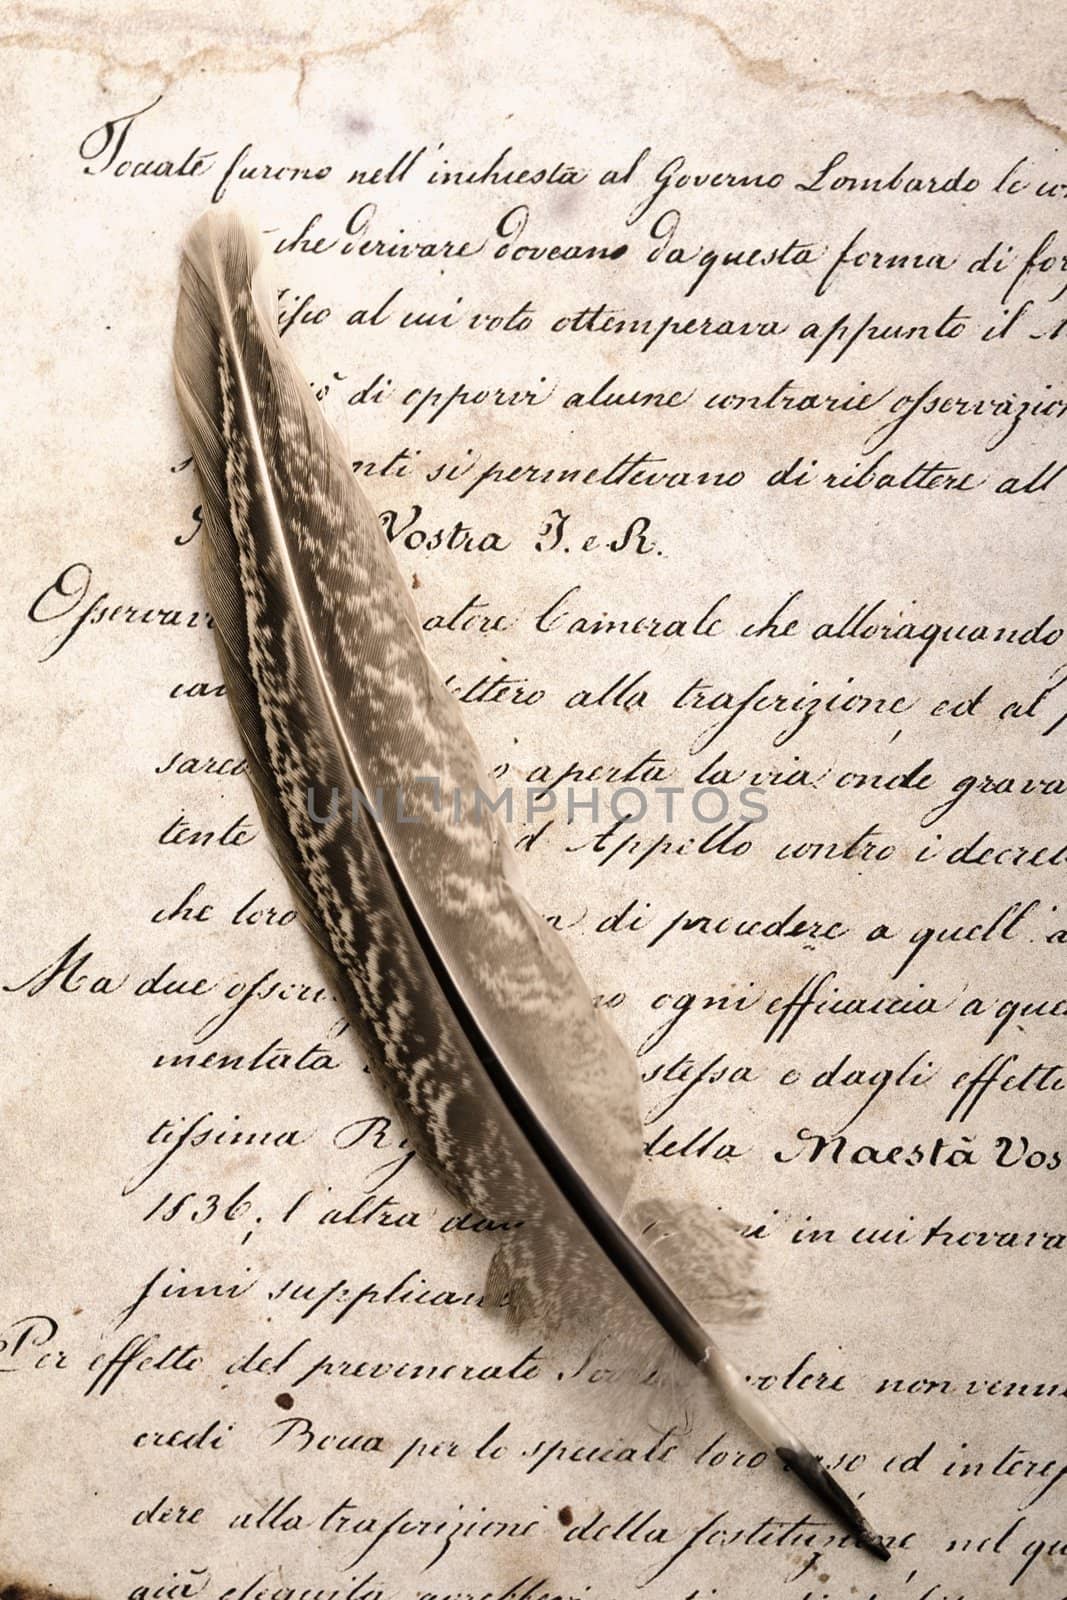 Toccate furono nell'inchiesta al Governo Lombardo le
che derivare doveano da questa forma di
al cui voto ottemperava appunto il
di opporvi alcune contrarie osservazion
nti si permettevano di ribattere all
Vostra I. e R.
Osservav atore Camerale che alloraquando
dettero alla trascrizione, ed al
aperta la via onde grava
tente d'Appello contro i decret
che loro di procedere a quell'a
Ma due osser no ogni efficaccia a que
mentata stessa e dagli effetti
tissima della Maestà Vos
1836; l'altra in cui trovava
simi supplican
Per effetto del prevenerato volere non venne
credi Boua per lo speciale loro caso ed interes
dere alla trascrizione della sostituzione, nel qu
già eseguita
UNLIMPHOTOS